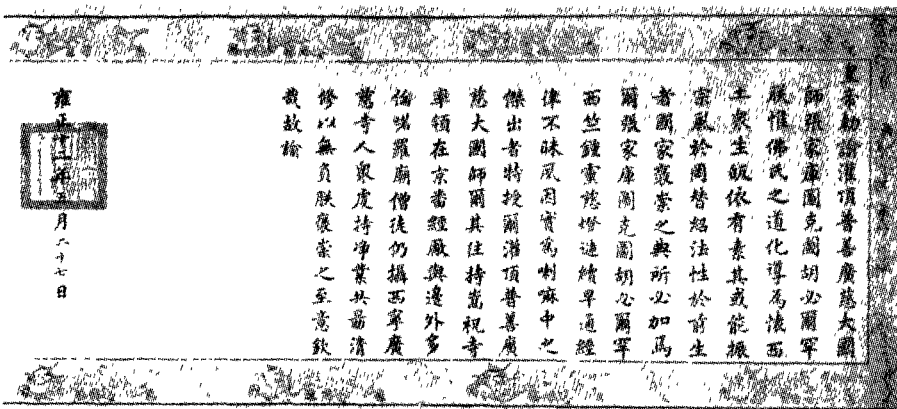 皇帝勅諭灌頂普善廣慈大國
師張家庫圖克圖胡必爾罕
朕惟佛氏之道化導為懷西
土衆生皈依有素其或能振
宗風於罔替紹法性於前生
者國家褒崇之典所必加焉
爾張家庫圖克圖胡必爾罕
西竺鍾靈慈燈連續早通經
律不昧夙因實為喇嘛中之
傑出者特授爾灌頂普善廣
慈大國師爾其住持嵩祝寺
率領在京番經廠與邊外多
倫喏羅廟僧徒仍攝西寧廣
慧寺人衆虔持净業共勗清
修以無負朕褒崇之至意欽
哉故諭
雍正十二年 月 十七日